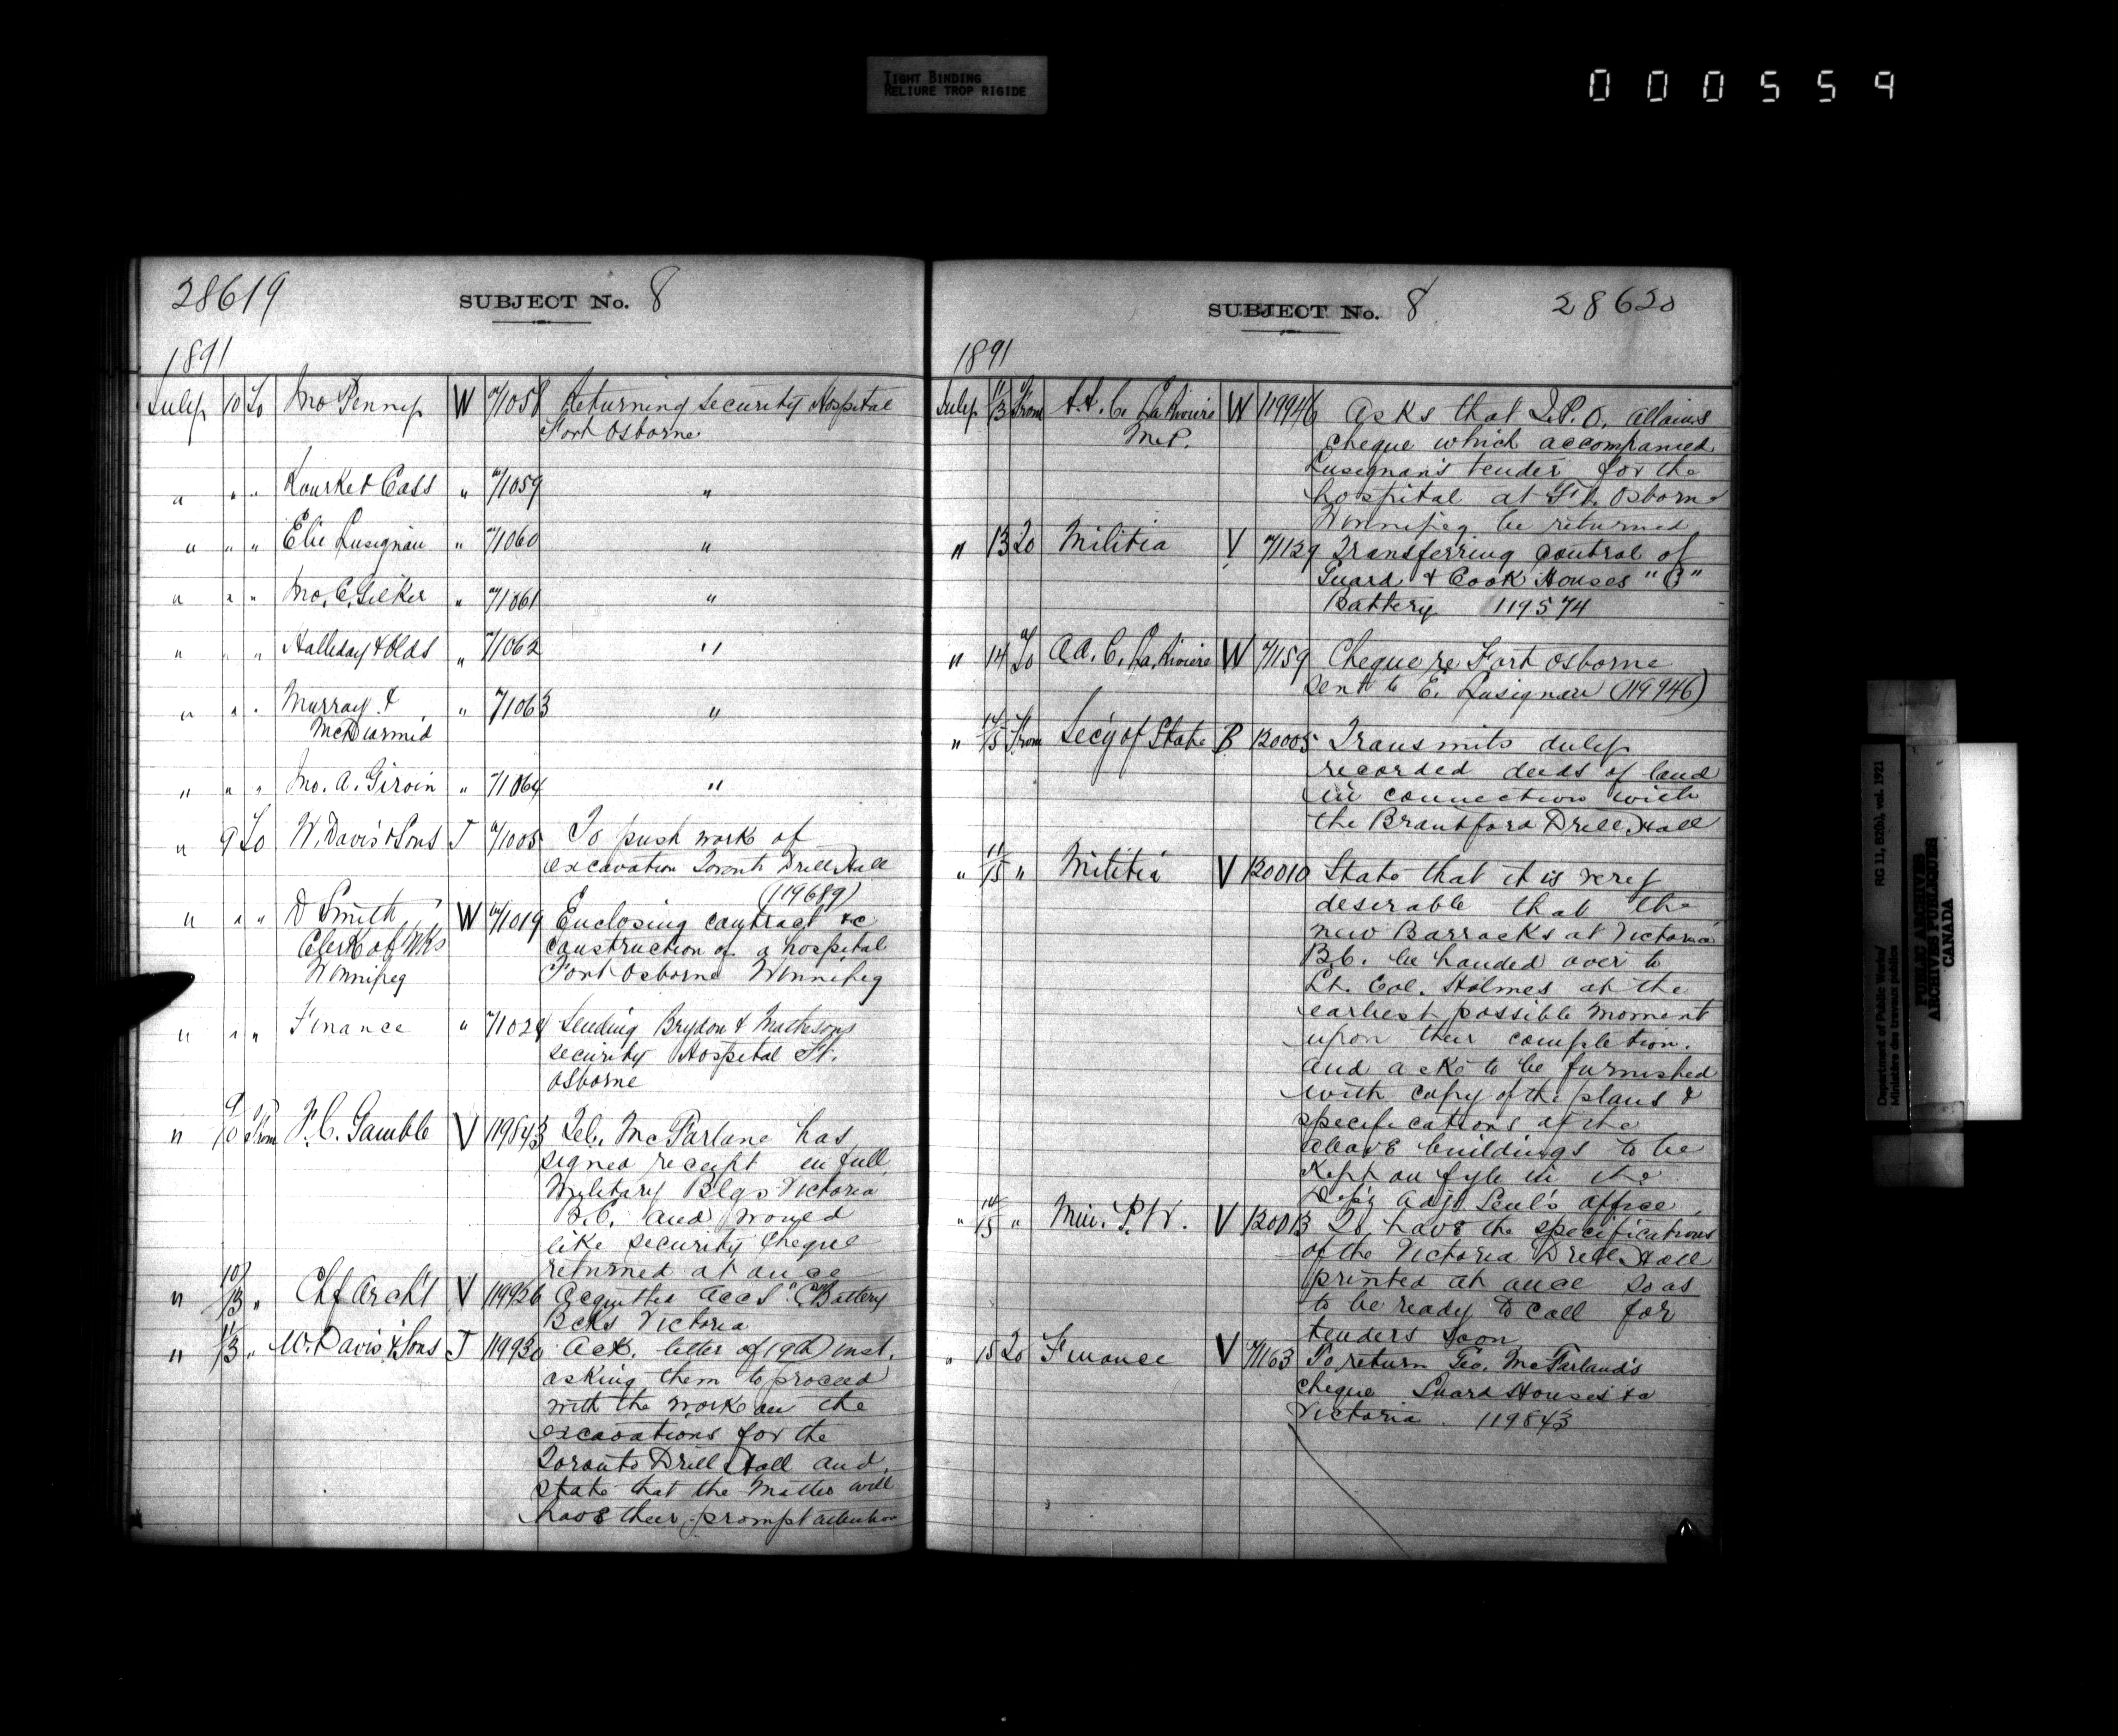 TIGHT BINDING
RELIURE TROP RIGIDE
000559
28619 SUBJECT No. 8
1891
July 10 To Jno Penny W 71058 Returning Security Hospital
Fort Osborne
" " " Rourke & Cass " 71059 "
" " " Elie Lusignan " 71060 "
" " " Jno. C. Gilker " 71061 "
" " " Halliday & Olds " 71062 "
" " " Murray & " 71063 "
McDiarmid
" " " Jno. A. Giroin " 71064 "
" 9 To W. Davis & Sons T 71005 To push work of
excavation Toronto Drill Hall
(119689)
" " " D Smith W 71019 Enclosing contract &c
Clerk of Wks construction of a hospital
Winnipeg Fort Osborne Winnipeg
" " " Finance " 71029 Sending Brydon & Mathesons
security Hospital Ft.
Osborne
" 9/10 From F. C. Gamble V 119843 McFarlane has
signed receipt in full
Military Blgs Victoria
B.C. and would
like security cheque
returned at once
" 10/13 " Chf Archt V 119926 Acquitted accs "C" Battery
Bcks Victoria
" 11/13 " W. Davis & Sons T 119930 Ack. letter of 9th inst.
asking them to proceed
with the work on the
excavations for the
Toronto Drill Hall and
state that the matter will
have their prompt attention
SUBJECT No. 8 28620
1891
July 11/13 From A. A. C. La Riviere W 119946 Asks that P. O. Allaires
M.P. cheque which accompanied
Lusignan's tender for the
hospital at Ft. Osborne
Winnipeg be returned
" 13 To Militia V 71129 Transferring control of
Guard & Cook Houses "B"
Battery 119574
" 14 To A A. C. La Riviere W 71159 Cheque re Fort Osborne
sent to E. Lusignan (119946)
" 14/15 From Secy of State B 120005 Transmits duly
recorded deeds of land
in connection with
the Brantford Drill Hall
" 11/15 " Militia V 120010 State that it is very
desirable that the
new Barracks at Victoria
B.C. be handed over to
Lt. Col. Holmes at the
earliest possible moment
upon their completion.
and asks to be furnished
with copy of the plans &
specifications of the
above buildings to be
kept on fyle in the
Dep'y Adjt Genl's office.
" 14/15 " Min. P.W. V 120013 To have the specifications
of the Victoria Drill Hall
printed at once so as
to be ready to call for
tenders soon
" 15 To Finance V 71163 To return Geo. McFarland's
cheque Guard Houses &c
Victoria. 119843
Department of Public Works/
Ministère des travaux publics
RG 11, B2(b), vol. 1921
PUBLIC ARCHIVES
ARCHIVES PUBLIQUES
CANADA